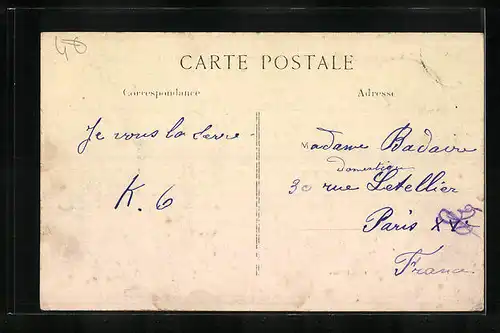 40
CARTE POSTALE
Correspondance
Adresse
Je vous la serre
K. 6
Madame Badaire
domestique
30 rue Letellier
Paris XV
France